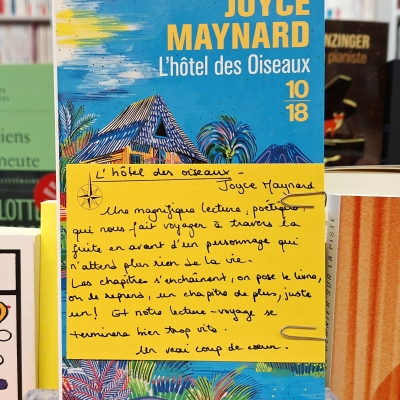 JOYCE
MAYNARD
L'hôtel des Oiseaux
10
18
L'hôtel des oiseaux -
Joyce Maynard
Une magnifique lecture, poétique,
qui nous fait voyager à travers la
fuite en avant d'un personnage qui
n'attend plus rien de la vie.
Les chapitres s'enchaînent, on pose le livre,
on le reprend, un chapitre de plus, juste
un ! Et notre lecture-voyage se
terminera bien trop vite.
Un vrai coup de cœur.
NZINGER
pianiste
iens
neute
LOTTE
SUR LA PISTE